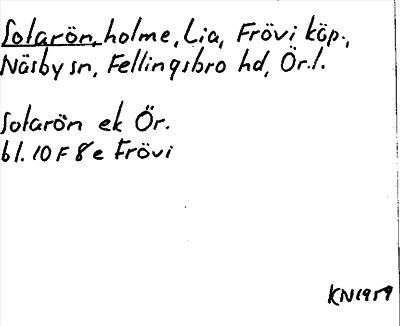 Solarön, holme, Lia, Frövi köp.,
Näsby sn, Fellingsbro hd, Ör.l.
Solarön ek Ör.
bl. 10 F 8 e Frövi
KN 1959